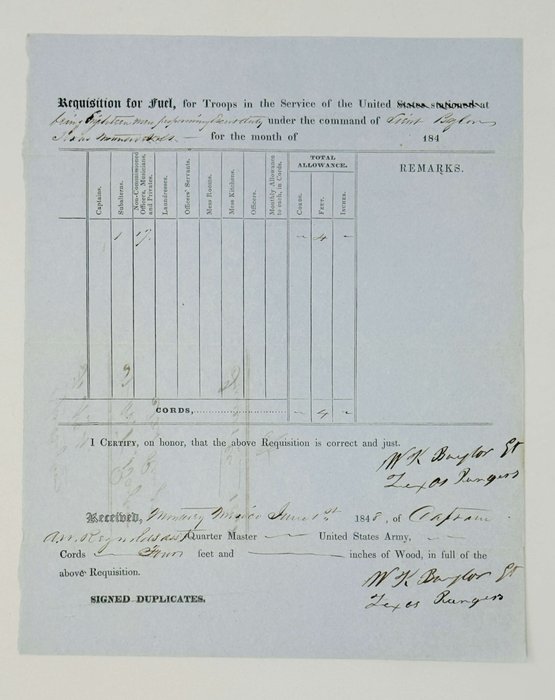 Requisition for Fuel, for Troops in the Service of the United States stationed at
being Eighteen men performing Escort duty under the command of Lieut Baylor
Texas Mounted Vols. for the month of 184
Captains.
Subalterns.
Non-Commissioned Officers, Musicians, and Privates.
Laundresses.
Officers' Servants.
Mess Rooms.
Mess Kitchens.
Officers.
Monthly Allowance to each, in Cords.
TOTAL ALLOWANCE.
Cords.
Feet.
Inches.
REMARKS.
1 17 – 4 –
CORDS, – 4 –
I CERTIFY, on honor, that the above Requisition is correct and just.
W K Baylor Lt
Texas Rangers
Received, Monterey Mexico June 1st 1848, of Captain
A.M. Reynolds asst Quarter Master — United States Army, —
Cords — Four feet and — inches of Wood, in full of the
above Requisition.
W K Baylor Lt
Texas Rangers
SIGNED DUPLICATES.